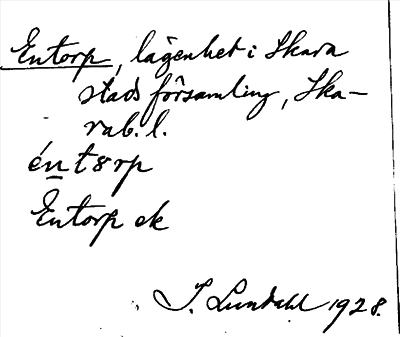 Entorp, lägenhet i Skara
stads församling, Ska-
rab. l.
én tɷrp
Entorp ek
I. Lundahl 1928.